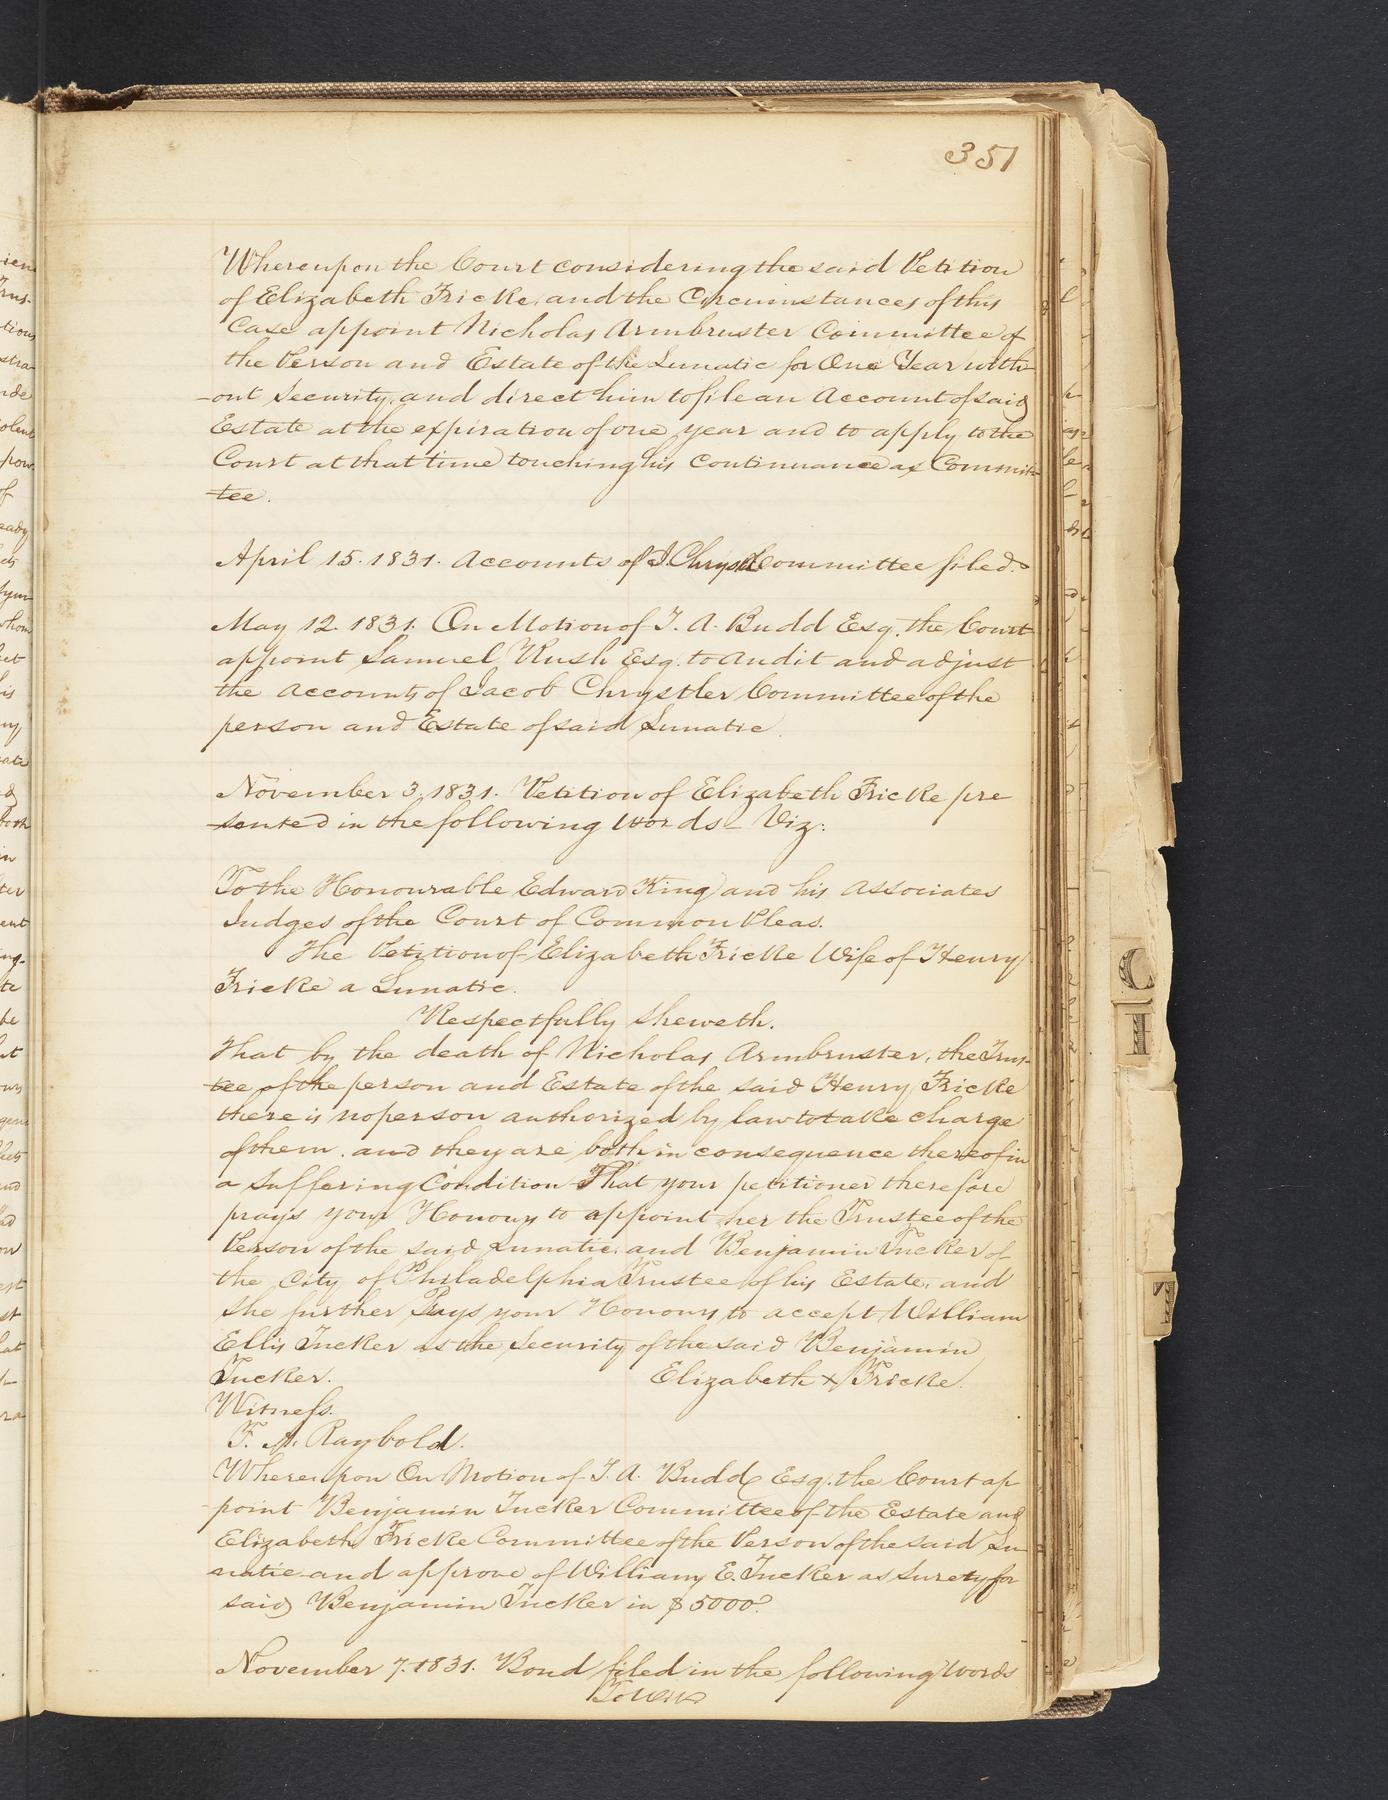 351
Whereupon the Court considering the said Petition
of Elizabeth Fricke, and the Circumstances of this
Case appoint Nicholas Armbruster Committee of
the Person and Estate of the Lunatic for One Year with-
-out Security, and direct him to file an Account of said
Estate at the expiration of one year and to apply to the
Court at that time touching his Continuance as Commit-
tee.
April 15. 1831. Accounts of J. Chrystler Committee filed.
May 12. 1831. On Motion of T. A. Budd Esq. the Court
appoint Samuel Rush Esq. to Audit and adjust
the Accounts of Jacob Chrystler Committee of the
person and Estate of said Lunatic.
November 3. 1831. Petition of Elizabeth Fricke pre
sented in the following Words – Viz:
To the Honourable Edward King and his Associates
Judges of the Court of Common Pleas.
The Petition of Elizabeth Fricke Wife of Henry
Fricke a Lunatic.
Respectfully Sheweth.
That by the death of Nicholas Armbruster, the Trus-
tee of the person and Estate of the said Henry Fricke
there is no person authorized by law to take charge
of them. and they are both in consequence thereof in
a Suffering Condition That your petitioner therefore
prays your Honours to appoint her the Trustee of the
Person of the said Lunatic, and Benjamin Tucker of
the City of Philadelphia Trustee of his Estate, and
She further Prays your Honours to accept William
Ellis Tucker as the Security of the said Benjamin
Tucker. Elizabeth x Fricke.
Witness.
F. M. Raybold.
Whereupon On Motion of T. A. Budd Esq. the Court ap
point Benjamin Tucker Committee of the Estate and
Elizabeth Fricke Committee of the Person of the said Lu-
natic and approve of William E. Tucker as Surety for
said Benjamin Tucker in $5000.
November 7. 1831. Bond filed in the following Words
To Wit
C
I
T